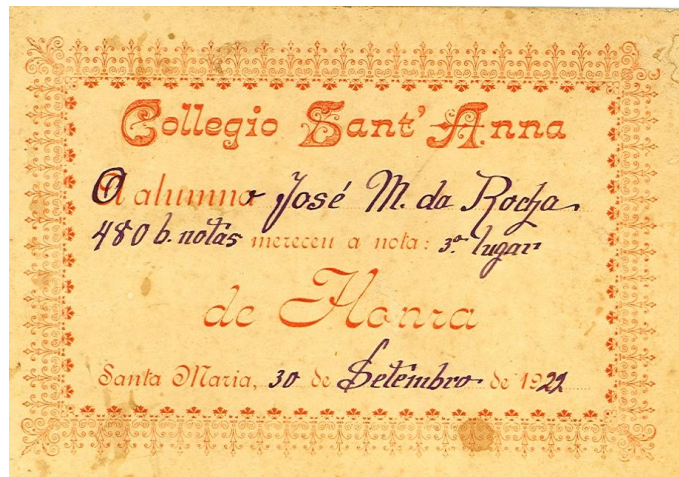 Collegio Sant'Anna
O alumno José M. da Rocha
480 b. notas mereceu a nota: 3º lugar
de Honra
Santa Maria, 30 de Setembro de 1922